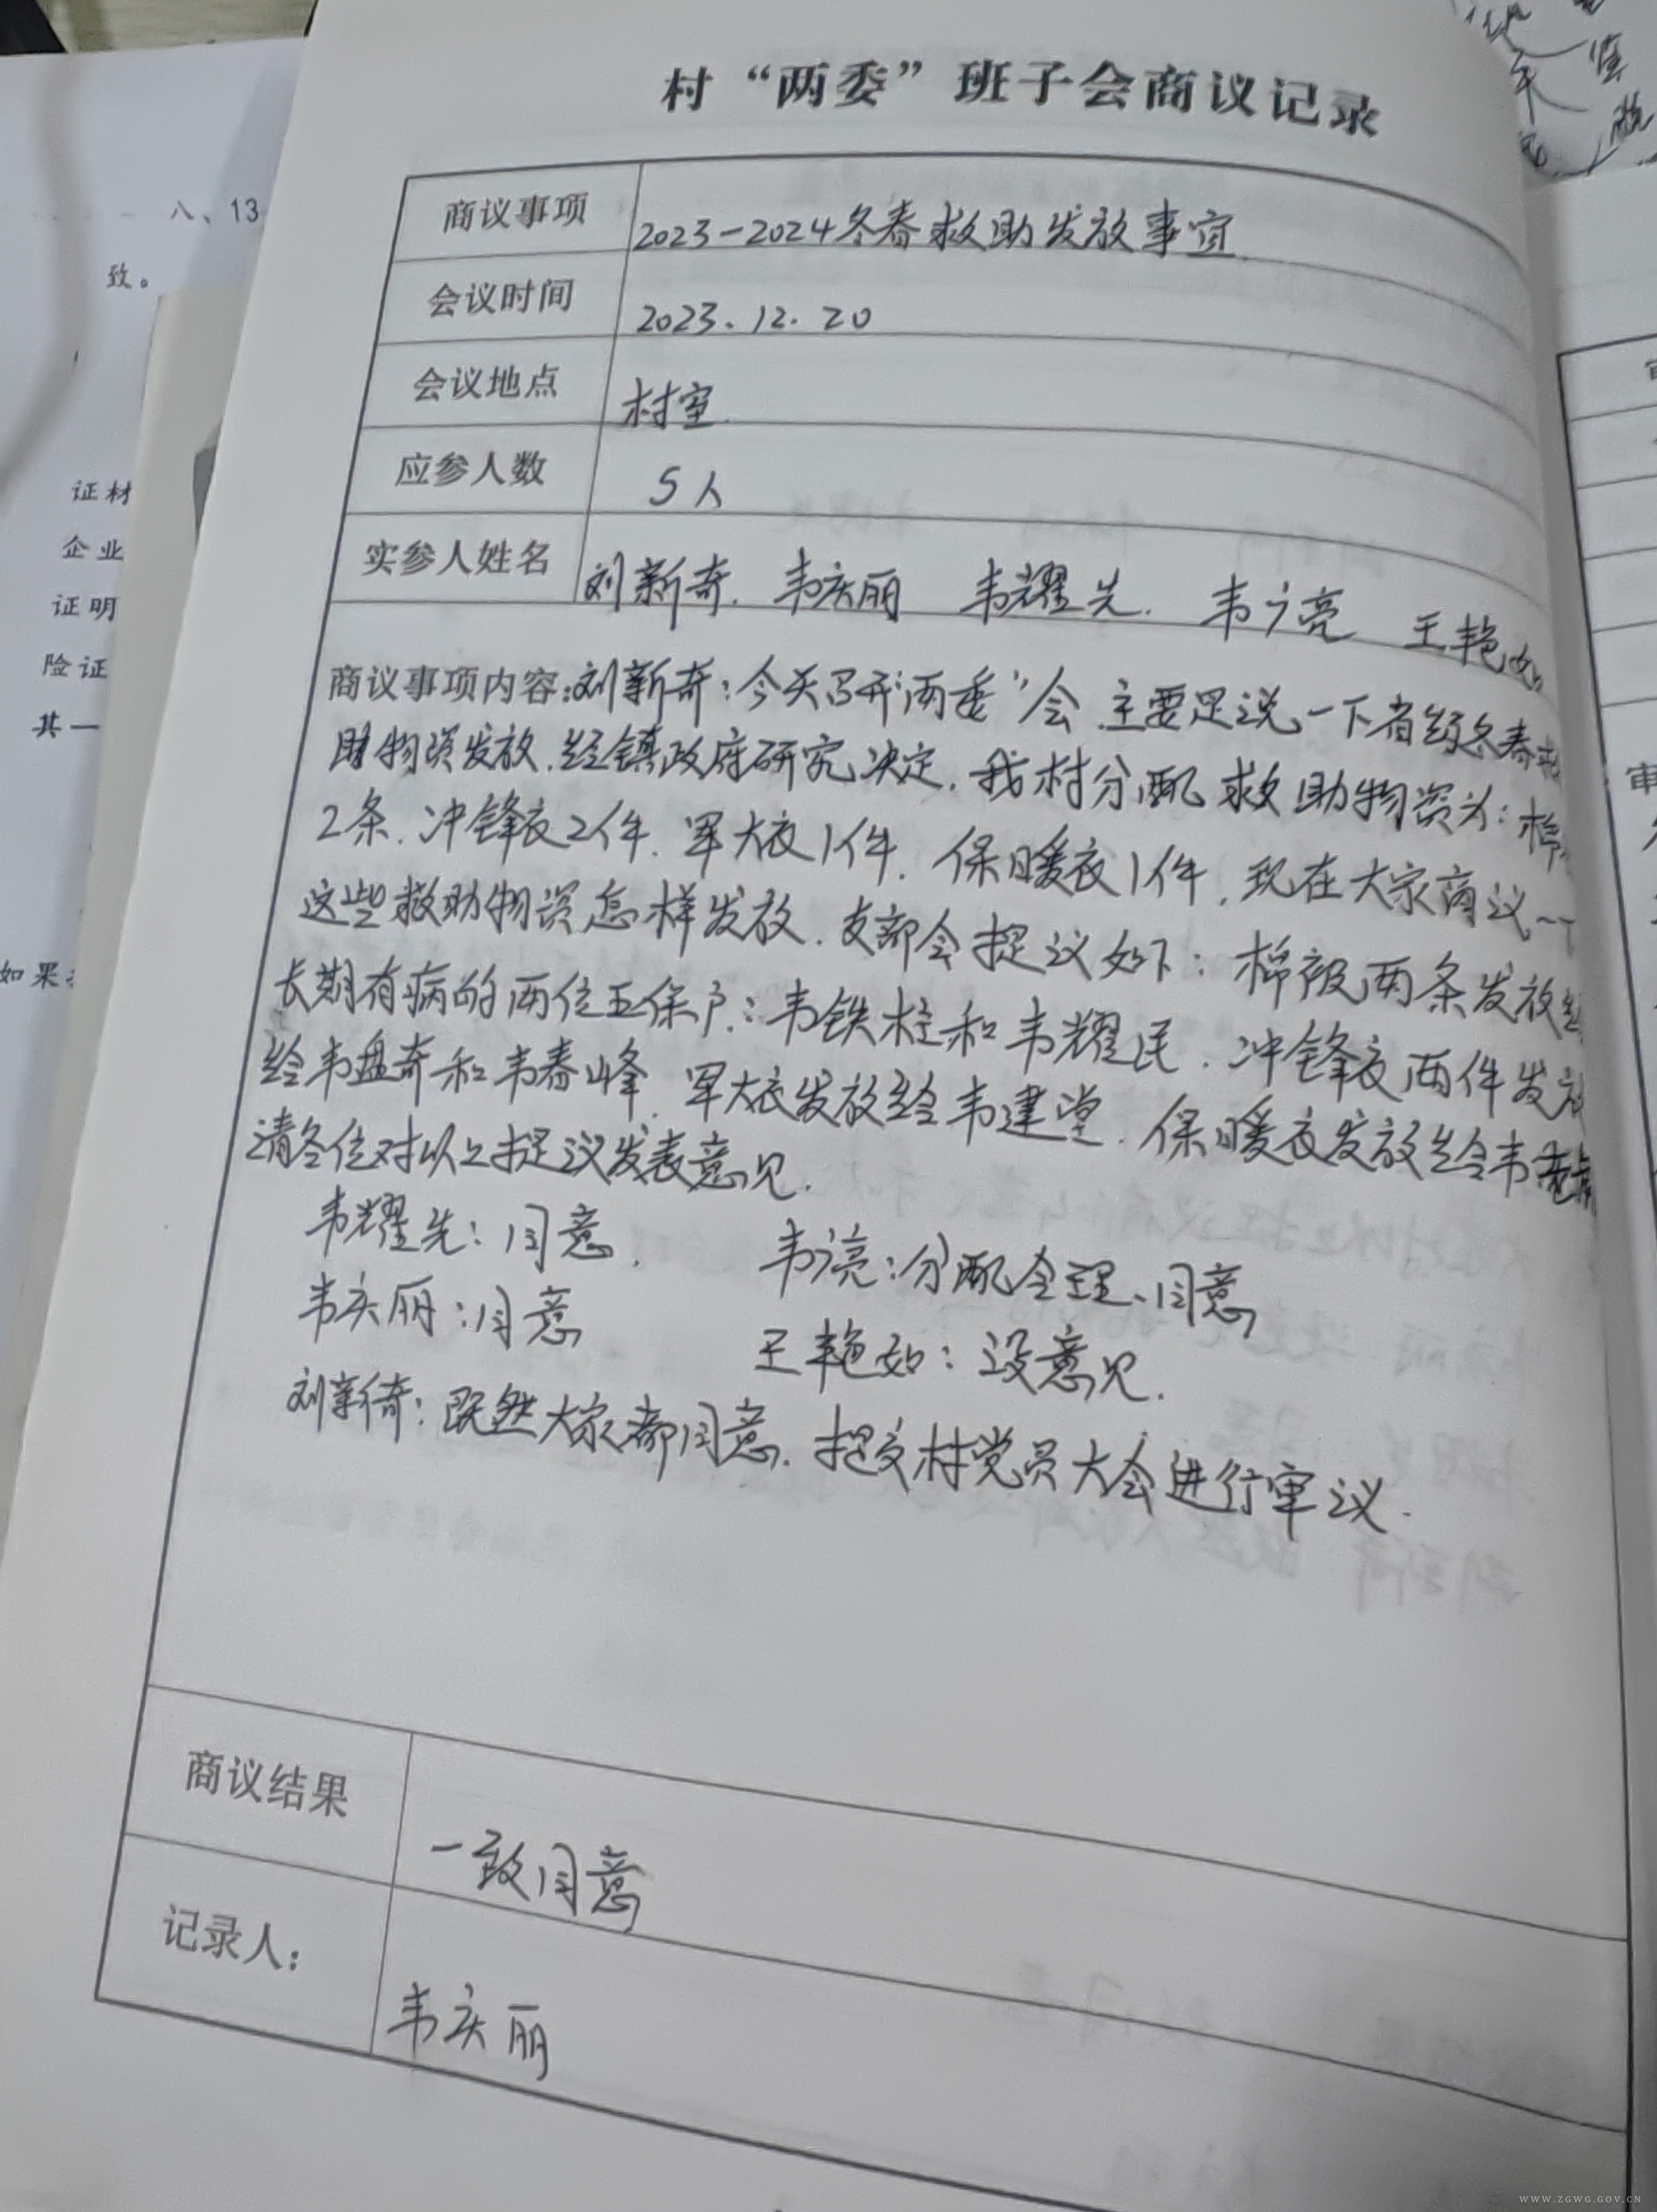 村“两委”班子会商议记录
商议事项 2023-2024冬春救助发放事宜
会议时间 2023.12.20
会议地点 村室
应参人数 5人
实参人姓名 刘新奇. 韦庆丽 韦耀先. 韦广亮 王艳如
商议事项内容:刘新奇:今天召开“两委”会.主要是说一下省级冬春
助物资发放.经镇政府研究决定.我村分配救助物资为:棉
2条.冲锋衣2件.军大衣1件.保暖衣1件.现在大家商议一下
这些救助物资怎样发放.支部会提议如下:棉被两条发放给
长期有病的两位五保户:韦铁柱和韦耀民.冲锋衣两件发放
给韦盘奇和韦春峰.军大衣发放给韦建堂.保暖衣发放给韦
请各位对以上提议发表意见.
韦耀先:同意. 韦广亮:分配合理、同意
韦庆丽:同意 王艳如:没意见.
刘新奇:既然大家都同意.提交村党员大会进行审议.
商议结果 一致同意
记录人: 韦庆丽
八、13
致。
证材
企业
证明
险证
其一
如果
审
WWW.ZGWG.GOV.CN